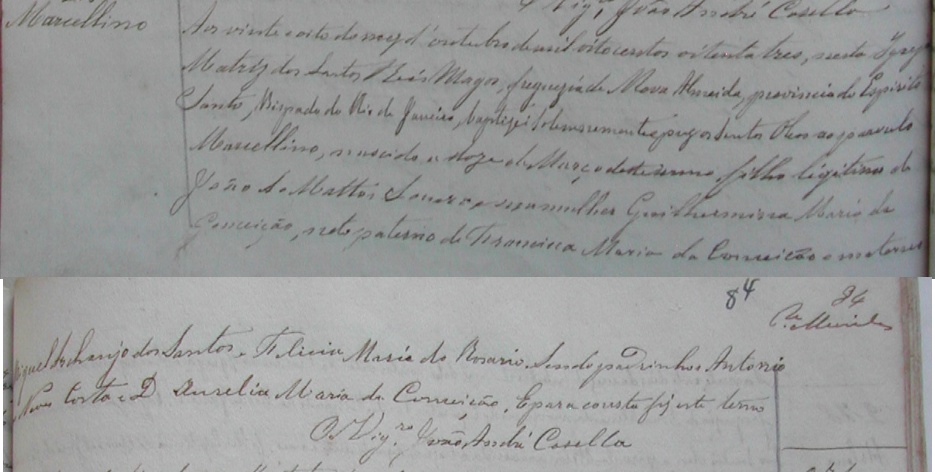 O Vigr.º João André Casella
Marcellino
Aos vinte e oito do mez d'outubro de mil oitocentos oitenta tres, nesta Igreja
Matriz dos Santos Reis Magos, freguezia de Nova Almeida, provincia do Espirito
Santo, Bispado do Rio de Janeiro, baptizei solemnemente e puz os Santos Oleos ao parvulo
Marcellino, nascido a doze de Março deste anno, filho legitimo de
João de Mattos e sua mulher Guilhermina Maria da
Conceição, neto paterno de Francisca Maria da Conceição e materno
84
84
Miguel Archanjo dos Santos e Felicia Maria do Rosario. Sendo padrinhos Antonio
Costa e D. Aurelia Maria da Conceição, E para constar fiz este termo
O Vigr.º João André Casella